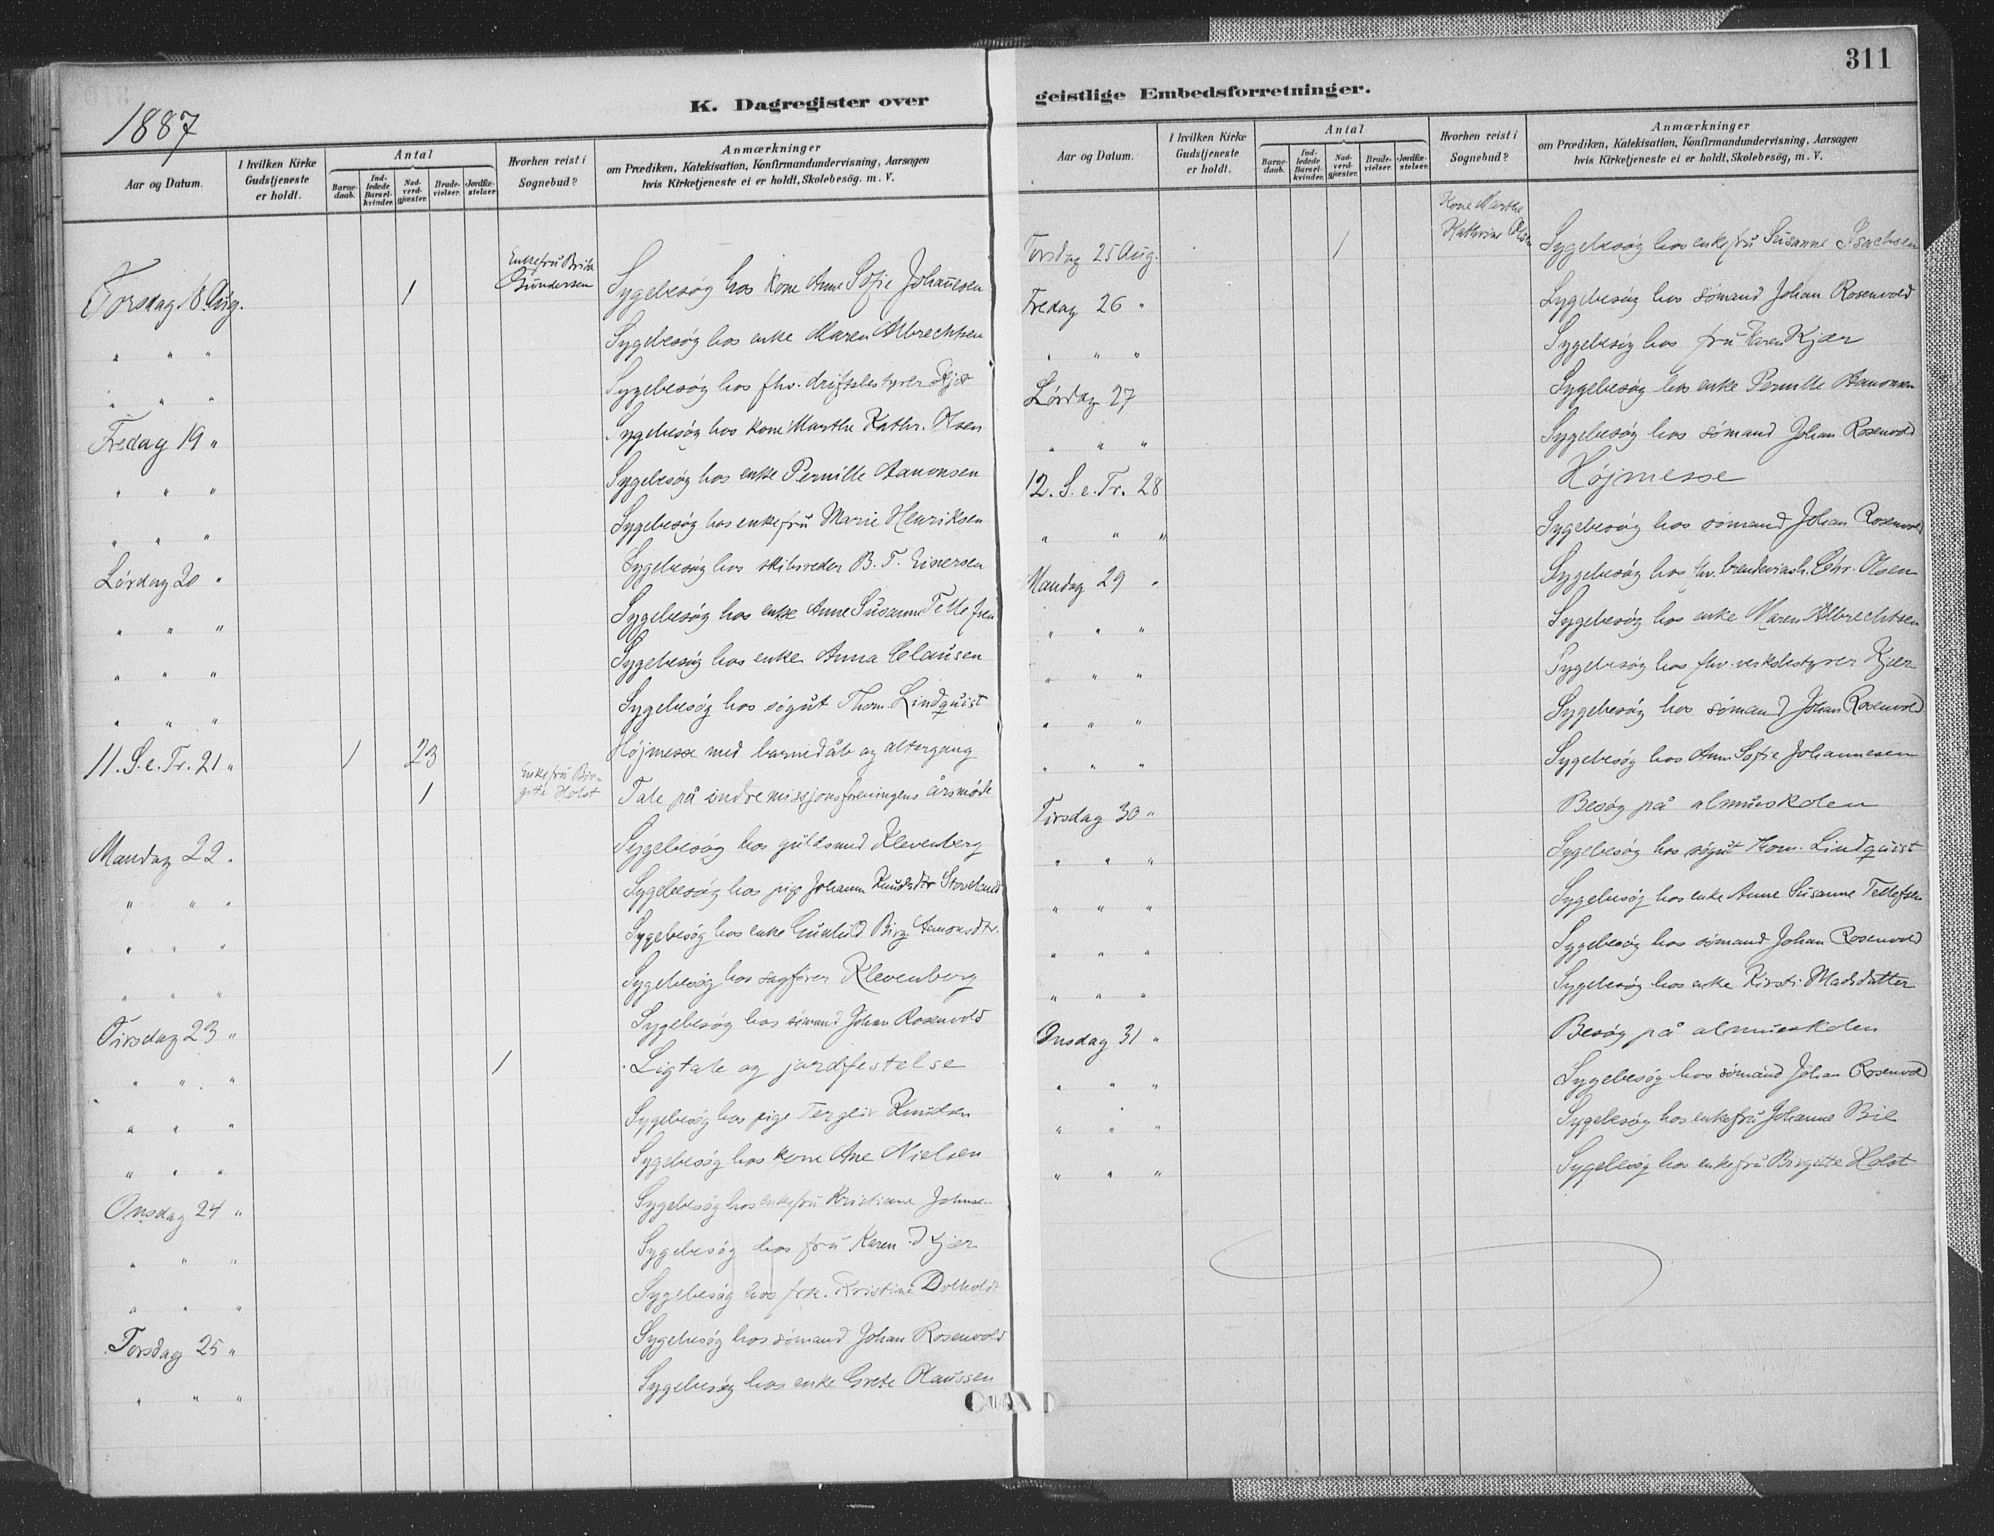 311
K. Dagregister over
geistlige Embedsforretninger.
1887
Aar og Datum.
I hvilken Kirke Gudstjeneste er holdt.
Antal
Barnedaab.
Indledede Barselkvinder.
Nadverdgjæster.
Brudevielser.
Jordfæstelser.
Hvorhen reist i Sognebud?
Anmærkninger
om Prædiken, Katekisation, Konfirmandundervisning, Aarsagen
hvis Kirketjeneste ei er holdt, Skolebesög. m. V.
Torsdag 18 Aug. 1 Enkefru Gundersen Sygebesøg hos kone Anne Sofie Johannesen
" " " Sygebesøg hos enke Maren Albrechtsen
" " " Sygebesøg hos fhv. driftsbestyrer Kjær
Fredag 19 " Sygebesøg hos kone Marthe Kathr. Olsen
" " " Sygebesøg hos enke Pernille Aanonsen
" " " Sygebesøg hos enkefru Marie Henriksen
Lørdag 20 " Sygebesøg hos skibsreder B. T. Einersen
" " " Sygebesøg hos enke Anne Susanne Tellefsen
" " " Sygebesøg hos enke Anna Clausen
" " " Sygebesøg hos søgut Thom. Lindquist
11. S. e. Tr. 21 " 1 23 Højmesse med barnedåb og altergang
1 Enkefru Birgitte Holst Tale på indremissjonsforeningens årsmøde
Mandag 22 " Sygebesøg hos guldsmed Klevenberg
" " " Sygebesøg hos pige Johanne Knudsdtr Stoveland
" " " Sygebesøg hos enke Gunhild Birg. Aanonsdtr.
" " " Sygebesøg hos sagfører Klevenberg
Tirsdag 23 " Sygebesøg hos sømand Johan Rosenvold
" " " 1 Ligtale og jordfestelse
" " " Sygebesøg hos pige Tergliv Knutsen
" " " Sygebesøg hos kone Ane Nielsen
Onsdag 24 " Sygebesøg hos enkefru Kristiane
" " " Sygebesøg hos fru Karen Kjær
" " " Sygebesøg hos frk. Kristine
Torsdag 25 " Sygebesøg hos sømand Johan Rosenvold
" " " Sygebesøg hos enke Grete Olaussen
Aar og Datum.
I hvilken Kirke Gudstjeneste er holdt.
Antal
Barnedaab.
Indledede Barselkvinder.
Nadverdgjæster.
Brudevielser.
Jordfæstelser.
Hvorhen reist i Sognebud?
Anmærkninger
om Prædiken, Katekisation, Konfirmandundervisning, Aarsagen
hvis Kirketjeneste ei er holdt, Skolebesög, m. V.
Torsdag 25 Aug. 1 Kone Marthe Kathrine Olsen Sygebesøg hos enkefru Susanne Isachsen
Fredag 26 " Sygebesøg hos sømand Johan Rosenvold
" " " Sygebesøg hos fru Karen Kjær
Lørdag 27 Sygebesøg hos enke Pernille Aanonsen
" " " Sygebesøg hos sømand Johan Rosenvold
12. S. e. Tr. 28 Højmesse
" " " Sygebesøg hos sømand Johan Rosenvold
Mandag 29 " Sygebesøg hos fhv. Chr. Olsen
" " " Sygebesøg hos enke Maren Albrechtsen
" " " Sygebesøg hos fhv. verksbestyrer Kjær
" " " Sygebesøg hos sømand Johan Rosenvold
" " " Sygebesøg hos Anne Sofie Johannesen
Tirsdag 30 " Besøg på almueskolen
" " " Sygebesøg hos søgut Thom. Lindquist
" " " Sygebesøg hos enke Anne Susanne Tellefsen
" " " Sygebesøg hos sømand Johan Rosenvold
" " " Sygebesøg hos enke Kirsti Madsdatter
Onsdag 31 " Besøg på almueskolen
" " " Sygebesøg hos sømand Johan Rosenvold
" " " Sygebesøg hos enkefru Johanne Bie
" " " Sygebesøg hos enkefru Birgitte Holst